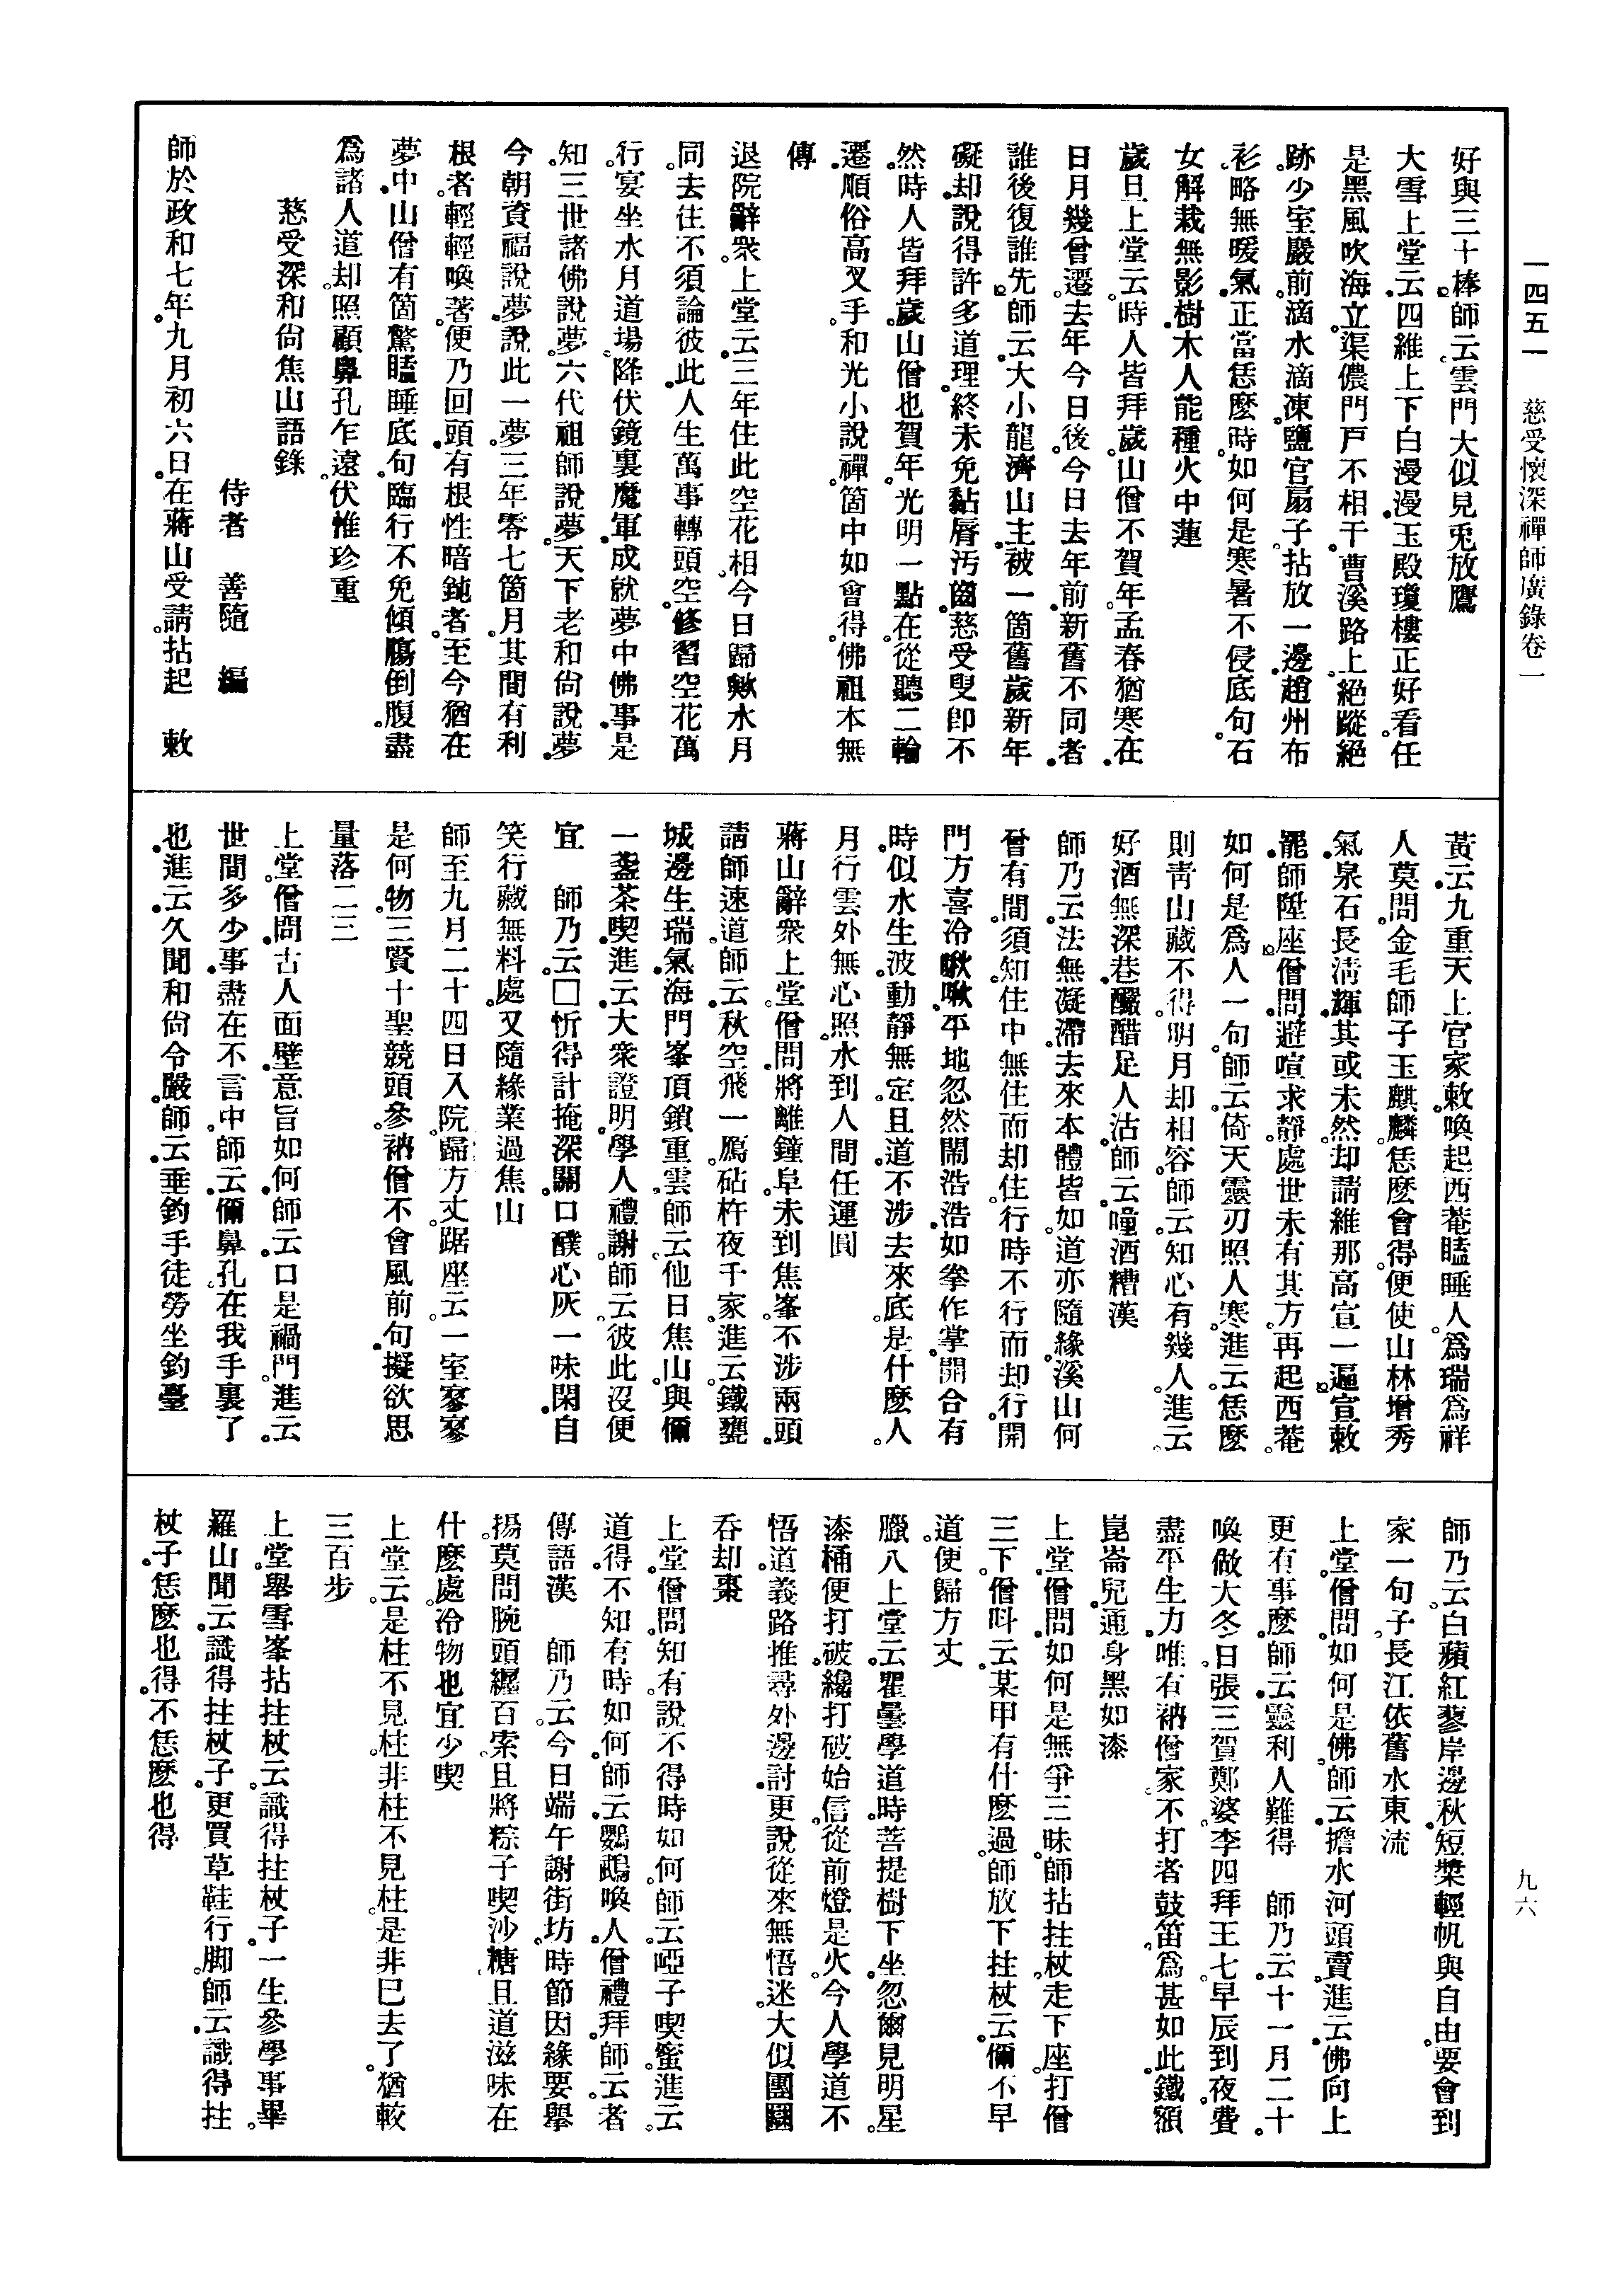 一四五一　慈受懷深禪師廣錄卷一
九六
好與三十棒。師云。雲門大似見兎放鷹
大雪上堂云。四維上下白漫漫。玉殿瓊樓正好看。任
是黑風吹海立。渠儂門戶不相干。曹溪路上。絕蹤絕
跡。少室巖前。滴水滴凍。鹽官扇子。拈放一邊。趙州布
衫。略無暖氣。正當恁麼時。如何是寒暑不侵底句。石
女解栽無影樹。木人能種火中蓮
歲旦上堂云。時人皆拜歲。山僧不賀年。孟春猶寒在。
日月幾曾遷。去年今日後。今日去年前。新舊不同者。
誰後復誰先。師云。大小龍濟山主。被一箇舊歲新年
礙却。說得許多道理。終未免粘脣汚齒。慈受叟卽不
然。時人皆拜歲。山僧也賀年。光明一點在。從聽二輪
遷。順俗高叉手。和光小說禪。箇中如會得。佛祖本無
傳
退院辭衆。上堂。云三年住此空花相。今日歸歟水月
同。去住不須論彼此。人生萬事轉頭空。修習空花萬
行。宴坐水月道場。降伏鏡裏魔軍。成就夢中佛事。是
知。三世諸佛說夢。六代祖師說夢。天下老和尙說夢。
今朝資福說夢。說此一夢。三年零七箇月。其間有利
根者。輕輕喚著。便乃回頭。有根性暗鈍者。至今猶在
夢中。山僧有箇驚瞌睡底句。臨行不免傾膓倒腹。盡
爲諸人道却。照顧鼻孔。乍遠。伏惟珍重
慈受深和尙焦山語錄
侍者　善隨　編
師於政和七年。九月初六日。在蔣山受請。拈起　敕
黃云。九重天上官家敕。喚起西菴瞌睡人。爲瑞爲祥
人莫問。金毛師子玉麒麟。恁麼會得。便使山林增秀
氣。泉石長淸輝。其或未然。却請維那高宣一遍。宣敕
罷。師陞座。僧問。避喧求靜處。世未有其方。再起西菴。
如何是爲人一句。師云。倚天靈刃照人寒。進云。恁麼
則靑山藏不得。明月却相容。師云。知心有幾人。進云。
好酒無深巷。釅醋足人沽。師云。噇酒糟漢
師乃云。法無凝滯。去來本體皆如。道亦隨緣。溪山何
曾有間。須知。住中無住而却住。行時不行而却行。開
門方喜冷啾啾。平地忽然鬧浩浩。如拳作掌。開合有
時。似水生波。動靜無定。且道。不涉去來底。是什麼人。
月行雲外無心照。水到人間任運圓
蔣山辭衆上堂。僧問。將離鐘阜。未到焦峯。不涉兩頭。
請師速道。師云。秋空飛一鴈。砧杵夜千家。進云。鐵甕
城邊生瑞氣。海門峯頂鎖重雲。師云。他日焦山。與儞
一盞茶喫。進云。大衆證明。學人禮謝。師云。彼此沒便
宜　師乃云。□忻得計掩深關。口醭心灰一味閑。自
笑行藏無料處。又隨緣業過焦山
師至九月二十四日入院。歸方丈。踞座。云。一室寥寥
是何物。三賢十聖競頭參。衲僧不會風前句。擬欲思
量落二三
上堂。僧問。古人面壁。意旨如何。師云。口是禍門。進云。
世間多少事。盡在不言中。師云。儞鼻孔。在我手裏了
也。進云。久聞和尙令嚴。師云。垂釣手徒勞坐釣臺
師乃云。白蘋紅蓼岸邊秋。短槳輕帆與自由。要會到
家一句子。長江依舊水東流
上堂。僧問。如何是佛。師云。擔水河頭賣。進云。佛向上
更有事麼。師云。靈利人難得　師乃云。十一月二十。
喚做大冬日。張三賀鄭婆。李四拜王七。早辰到夜。費
盡平生力。唯有衲僧家。不打者鼓笛。爲甚如此。鐵額
崑崙兒。通身黑如漆
上堂。僧問。如何是無爭三昧。師拈拄杖走下座。打僧
三下。僧呌云。某甲有什麼過。師放下拄杖云。儞不早
道。便歸方丈
臘八上堂云。瞿曇學道時。菩提樹下坐。忽爾見明星。
漆桶便打破。纔打破始信。從前燈是火。今人學道不
悟道。義路推尋外邊討。更說從來無悟迷。大似團圞
吞却棗
上堂。僧問。知有說不得時如何。師云。啞子喫蜜。進云。
道得不知有時如何。師云。鸚鵡喚人。僧禮拜。師云。者
傳語漢　師乃云。今日端午謝街坊。時節因緣要舉
揚。莫問腕頭纏百索。且將粽子喫沙糖。且道滋味在
什麼處。冷物也宜少喫
上堂云。是柱不見柱。非柱不見柱。是非已去了。猶較
三百步
上堂。舉雪峯拈拄杖云。識得拄杖子。一生參學事畢。
羅山聞云。識得拄杖子。更買草鞋行脚。師云。識得拄
杖子。恁麼也得。不恁麼也得